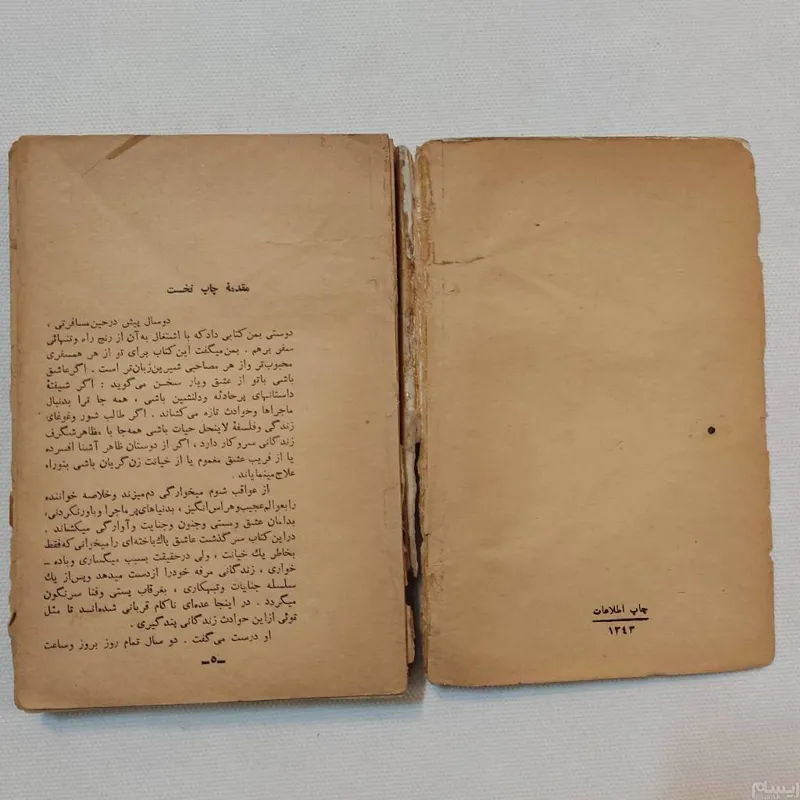 مقدمهٔ چاپ نخست
دو سال پیش در حین مسافرتی ،
دوستی بمن کتابی داد که با اشتغال به آن از رنج راه و تنهائی
سفر برهم . بمن میگفت این کتاب برای تو از هر همسفری
محبوب‌تر و از هر مصاحبی شیرین زبان‌تر است . اگر عاشق
باشی با تو از عشق و یار سخن می‌گوید : اگر شیفتهٔ
داستانهای پر حادثه و دلنشین باشی ، همه جا ترا بدنبال
ماجراها و حوادث تازه می‌کشاند . اگر طالب شور و غوغای
زندگی و فلسفهٔ لاینحل حیات باشی همه‌جا با مظاهر شگرف
زندگانی سر و کار دارد ، اگر از دوستان ظاهر آشنا افسرده
یا از فریب عشق مغموم یا از خیانت زن گریان باشی بتو راه
علاج مینمایاند .
از عواقب شوم میخوارگی دم میزند و خلاصه خواننده
را بعوالم عجیب و هراس انگیز ، بدنیاهای پر ماجرا و باور نکردنی،
بدامان عشق و مستی و جنون و جنایت و آوارگی میکشاند .
در این کتاب سرگذشت عاشق پاك باخته‌ای را میخوانی که فقط
بخاطر یك خیانت ، ولی در حقیقت بسبب میگساری و باده ـ
خواری ، زندگانی مرفه خود را از دست میدهد و پس از یك
سلسله جنایات و تبهکاری ، بغرقاب پستی و فنا سرنگون
میگردد . در اینجا عده‌ای ناکام قربانی شده‌اند تا مثل
توئی از این حوادث زندگانی پند گیری .
او درست می‌گفت . دو سال تمام روز بروز و ساعت
ـ۵ـ
چاپ اطلاعات
۱۳۴۳
ایسام